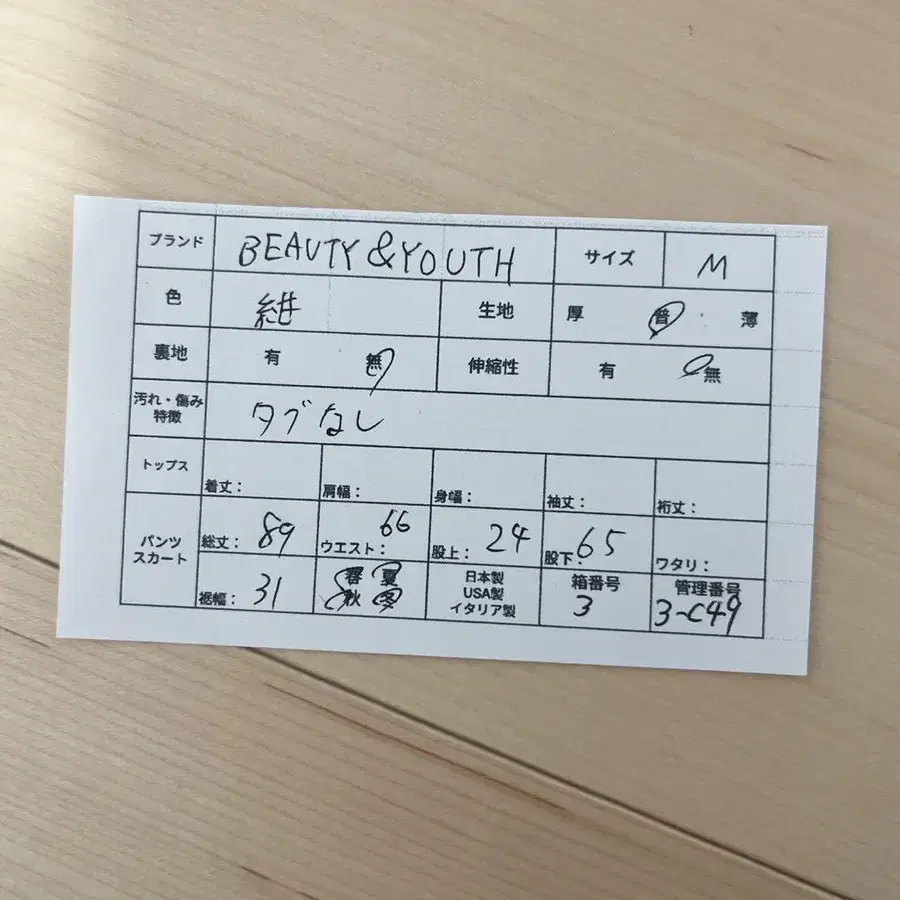 ブランド BEAUTY&YOUTH サイズ M
色 紺 生地 厚 普 薄
裏地 有 無 伸縮性 有 無
汚れ・傷み
特徴 タブなし
トップス 着丈: 肩幅: 身幅: 袖丈: 裄丈:
パンツ
スカート 総丈: 89 ウエスト: 66 股上: 24 股下: 65 ワタリ:
裾幅: 31
春 夏
秋 冬
日本製
USA製
イタリア製
箱番号
3
管理番号
3-C49